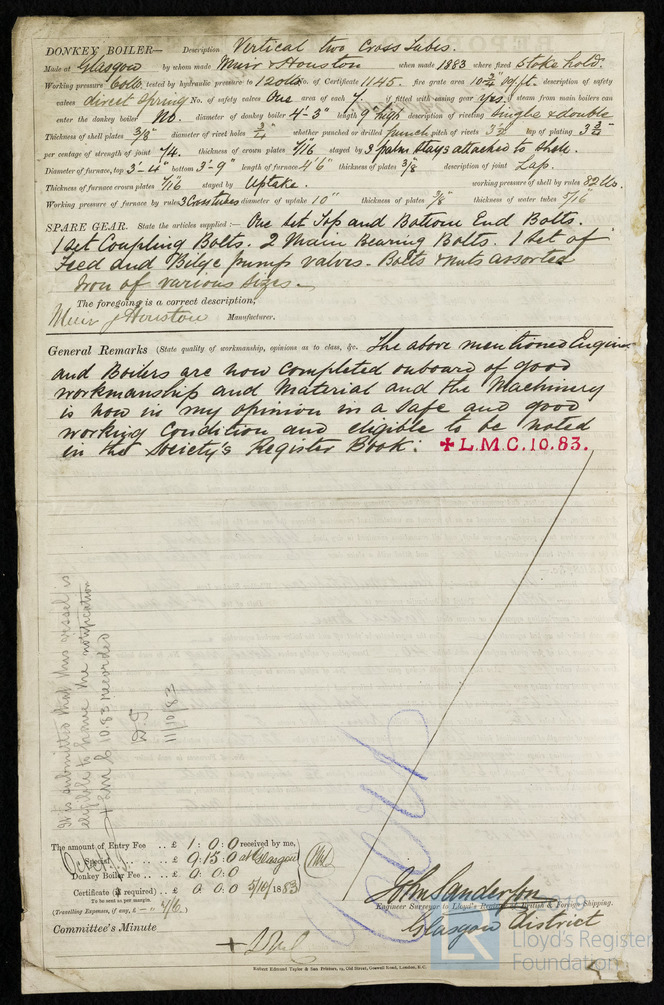 DONKEY BOILER— Description Vertical two Cross Tubes.
Made at Glasgow by whom made Muir & Houston when made 1883 where fixed Stoke hold.
Working pressure 60lbs tested by hydraulic pressure to 120lbs No. of Certificate 1145. fire grate area 10 3/4 sq ft. description of safety
valves direct Spring No. of safety valves One area of each 7. if fitted with easing gear yes. if steam from main boilers can
enter the donkey boiler No. diameter of donkey boiler 4'-3" length 9" high description of riveting Single & double
Thickness of shell plates 3/8 diameter of rivet holes 3/4 whether punched or drilled punch pitch of rivets lap of plating
per centage of strength of joint 74. thickness of crown plates 7/16 stayed by 3 palm Stays attached to Shell.
Diameter of furnace, top 3'-4" bottom 3'-9" length of furnace 4'6" thickness of plates 3/8 description of joint Lap.
Thickness of furnace crown plates 7/16 stayed by Uptake. working pressure of shell by rules 82lbs.
Working pressure of furnace by rules 3 Cross tubes diameter of uptake 10" thickness of plates 3/8 thickness of water tubes 5/16"
SPARE GEAR. State the articles supplied:— One Set Top and Bottom End Bolts.
1 Set Coupling Bolts. 2 Main Bearing Bolts. 1 Set of
Feed and Bilge pump valves. Bolts & nuts assorted
Iron of various sizes.
The foregoing is a correct description,
Muir & Houston Manufacturer.
General Remarks (State quality of workmanship, opinions as to class, &c. The above mentioned Engines
and Boilers are now completed onboard of good
workmanship and Material and the Machinery
is now in my opinion in a safe and good
working Condition and eligible to be noted
in the Society's Register Book: ✠ L.M.C. 10.83.
It is submitted that this vessel is
eligible to have the notification
+ LMC 10.83 recorded
11/10/83
The amount of Entry Fee .. £ 1 : 0 : 0 received by me,
Special .. £ 9 : 15 : 0 at Glasgow
Donkey Boiler Fee .. £ 0 : 0 : 0
Certificate (if required) .. £ 0 0 0 5/10/1883
To be sent as per margin.
(Travelling Expenses, if any, £
John Sanderson
Engineer Surveyor to Lloyd's Register of British & Foreign Shipping.
Glasgow District
Committee's Minute
Robert Edmund Taylor & Son Printers, 19, Old Street, Goswell Road, London, E.C.
LR
Lloyd's Register
Foundation